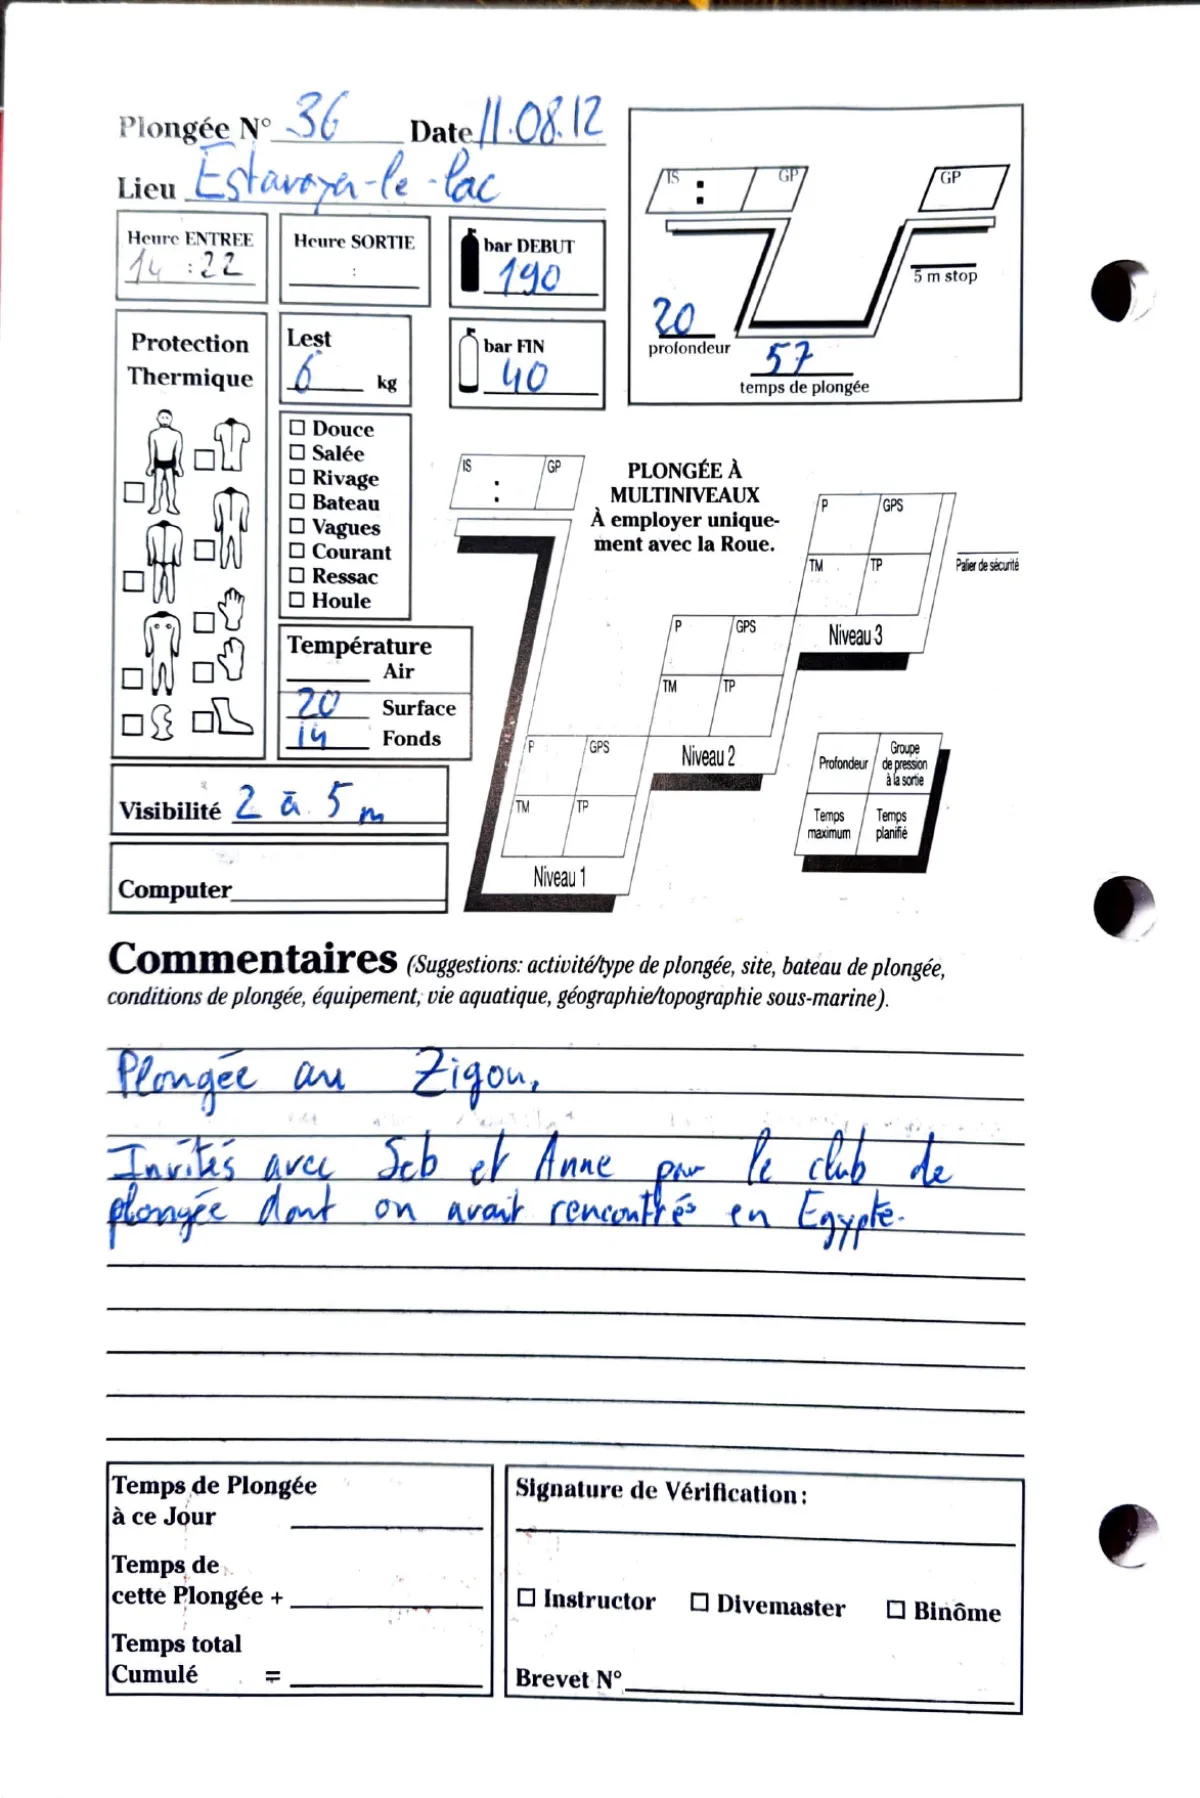 Plongée N° 36 Date 11.08.12
Lieu Estavayer-le-lac
Heure ENTREE
14 : 22
Heure SORTIE
:
bar DEBUT
190
bar FIN
40
IS : GP
GP
5 m stop
20
profondeur
57
temps de plongée
Protection
Thermique
Lest
6 kg
Douce
Salée
Rivage
Bateau
Vagues
Courant
Ressac
Houle
Température
Air
20 Surface
14 Fonds
Visibilité 2 à 5 m
Computer
IS : GP
PLONGÉE À
MULTINIVEAUX
À employer unique-
ment avec la Roue.
P GPS
TM TP
Niveau 1
P GPS
TM TP
Niveau 2
P GPS
TM TP
Niveau 3
Palier de sécurité
Profondeur
Groupe
de pression
à la sortie
Temps
maximum
Temps
planifié
Commentaires (Suggestions: activité/type de plongée, site, bateau de plongée,
conditions de plongée, équipement, vie aquatique, géographie/topographie sous-marine).
Plongée au Zigou,
Invités avec Seb et Anne par le club de
plongée dont on avait rencontrés en Egypte.
Temps de Plongée
à ce Jour
Temps de
cette Plongée +
Temps total
Cumulé =
Signature de Vérification:
Instructor Divemaster Binôme
Brevet N°